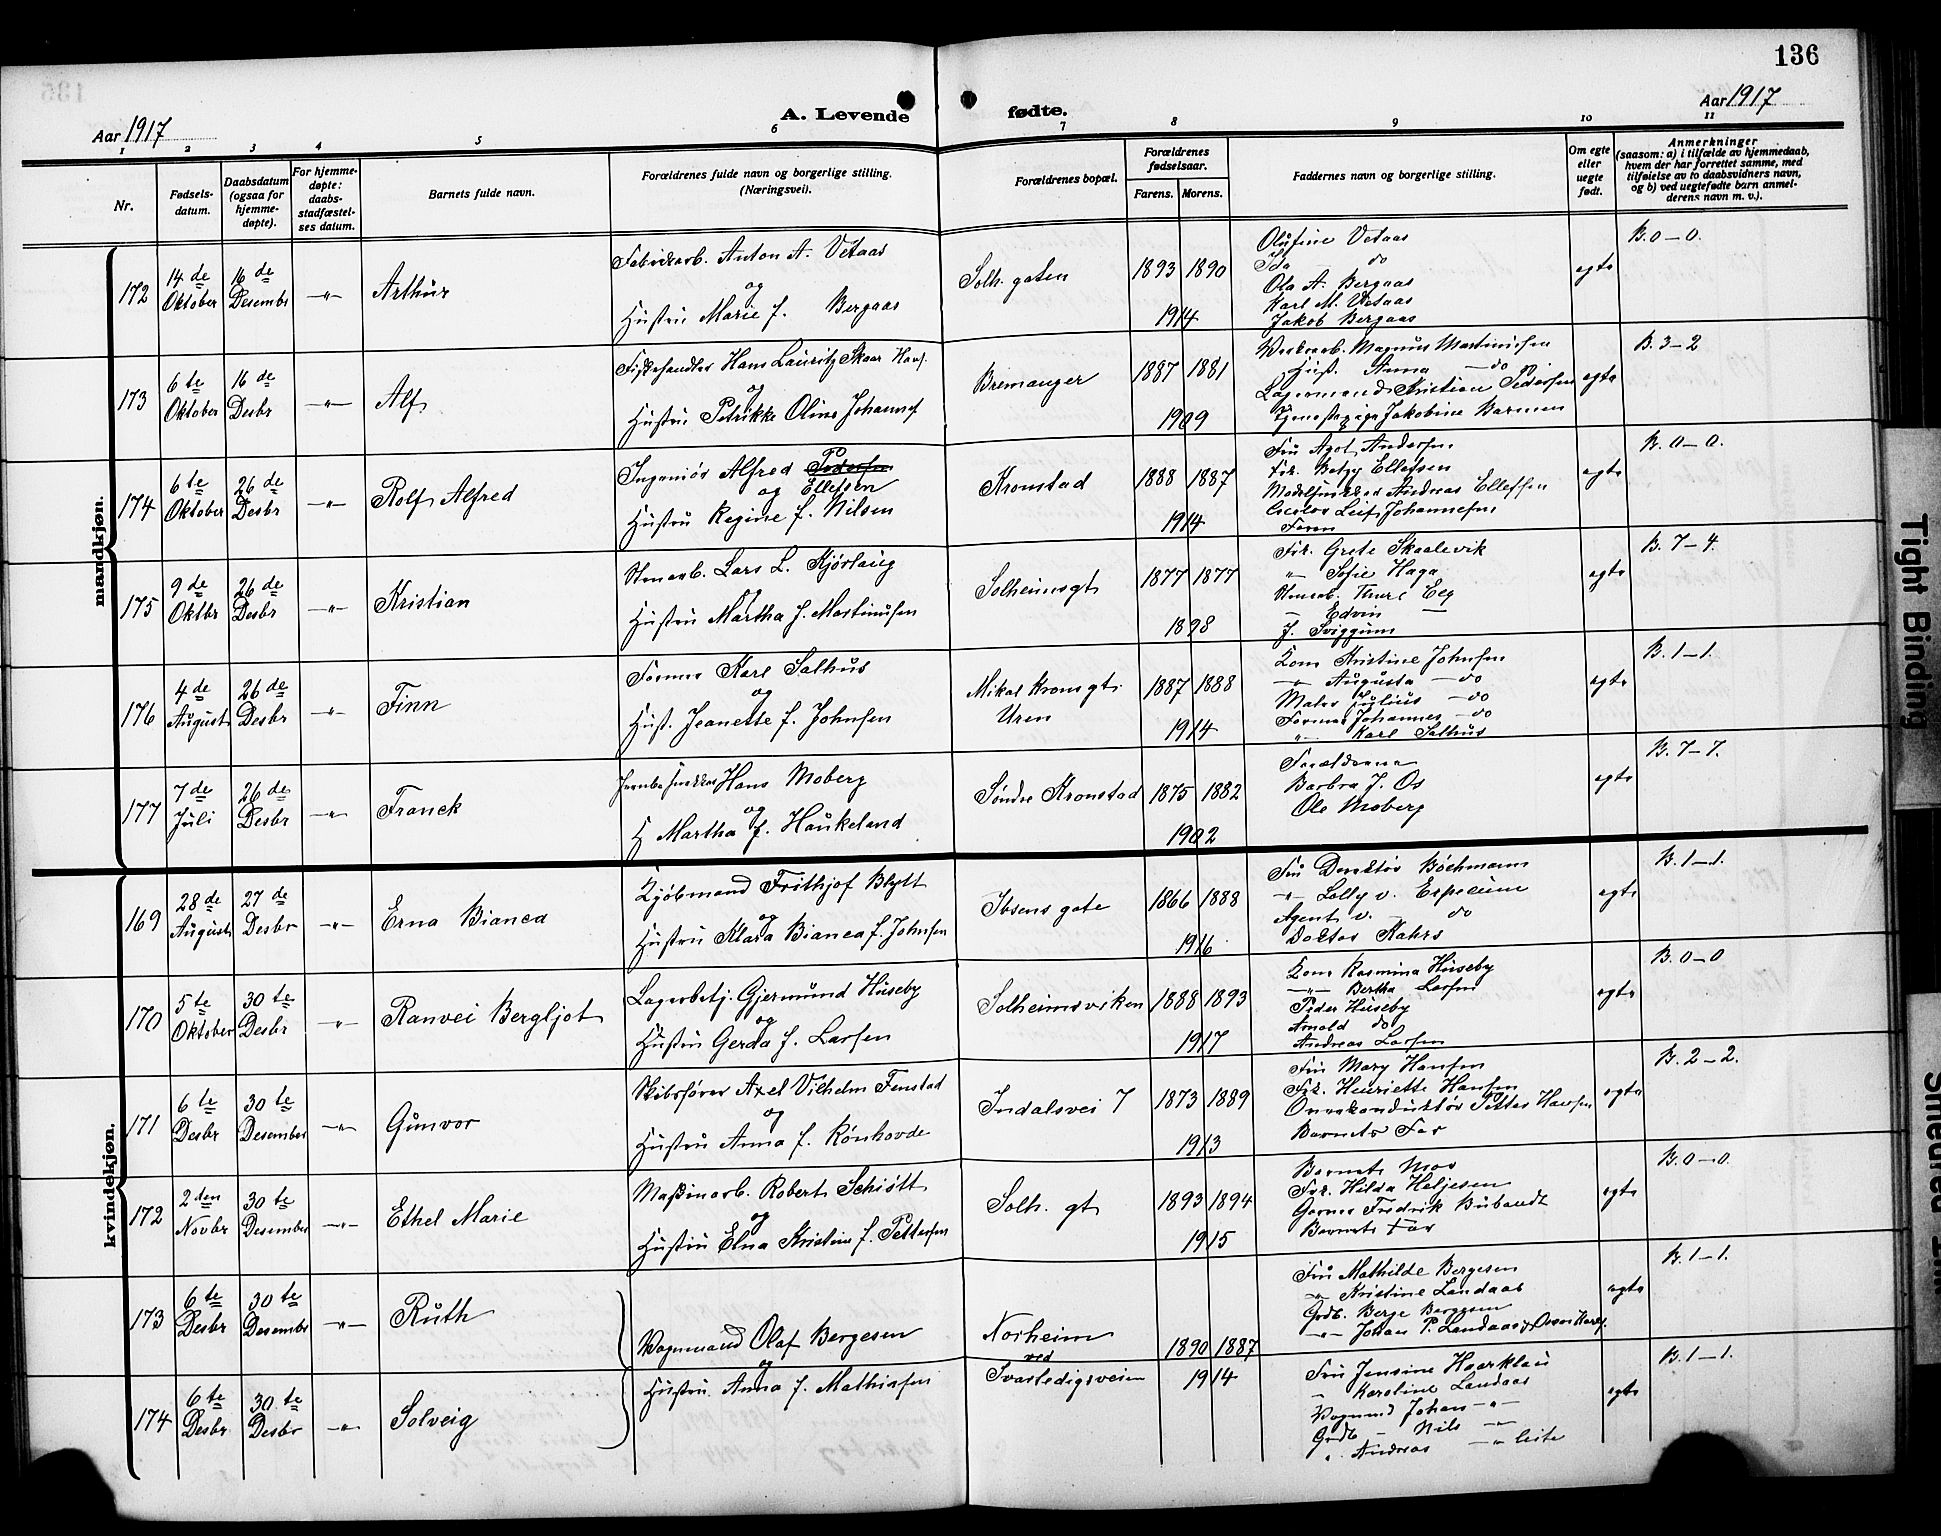 136
Aar 1917
A. Levende fødte.
Aar 1917
1 2 3 4 5 6 7 8 9 10 11
Nr.
Fødsels-
datum.
Daabsdatum
(ogsaa for
hjemme-
døpte).
For hjemme-
døpte:
daabs-
stadfæstel-
ses datum.
Barnets fulde navn.
Forældrenes fulde navn og borgerlige stilling.
(Næringsvei).
Forældrenes bopæl.
Forældrenes
fødselsaar.
Farens. Morens.
Faddernes navn og borgerlige stilling.
Om egte
eller
uegte
født.
Anmerkninger
(saasom: a) i tilfælde av hjemmedaab,
hvem der har forrettet samme, med
tilføielse av to daabsvidners navn,
og b) ved uegtefødte barn anmel-
derens navn m. v.).
mandkjøn.
172
14 de
Oktober
16 de
Desembr
-"-
Arthur
Fabrikarb. Anton A. Vetaas
og
Hustru Marie f. Bergaas
Solh. gaten
1893 1890
1914
Olufine Vetaas
Ida do
Ola A. Bergaas
Karl M. Vetaas
Jakob Bergaas
egte
B. 0-0.
173
6 te
Oktober
16 de
Desbr
-"-
Alf
Fiskehandler Hans Lauritz Skaar Hans.
og
Hustru Petrikke Oline Johannes
Bremanger
1887 1881
1909
Verksarb. Magnus Martinussen
Hust. Anna -do
Lagermand Kristian Pedersen
Tjenestepige Jakobine Barmen
egte
B. 3-2
174
6 te
Oktober
26 de
Desbr
-"-
Rolf Alfred
Ingeniør Alfred P Pedersen
og Ellefsen
Hustru Regine f. Nilsen
Kronstad
1888 1887
1914
Fru Agot Andersen
Frk. Betzy Ellefsen
Modelsnikker Andreas Ellefsen
Leif Johannesen
Faren
egte
B. 0-0.
175
9 de
Oktbr
26 de
Desbr
-"-
Kristian
Stenarb. Lars L. Kjørlaug
Hustru Martha f. Martinussen
Solheimsgt
1877 1877
1898
Frk. Grete Skaalevik
-"- Sofie Haga
Stenarb. Thure Eeg
- Edvin -
J. Sviggum
egte
B. 7-4.
176
4 de
August
26 de
Desbr
-"-
Finn
Former Karl Salhus
og
Hust. Jeanette f. Johnsen
Mikal Kronsgt.
Uren
1887 1888
1914
Kone Kristine Johnsen
-"- Augusta -do
Maler Julius -do
Former Johannes -do
-"- Karl Salhus
egte
B. 1-1.
177
7 de
Juli
26 de
Desbr
-"-
Franck
Hans Moberg
og
H Martha f. Haukeland
Søndre Kronstad
1875 1882
1902
Forældrene
Barbra J. Os
Ole Moberg
egte
B. 7-7.
kvindekjøn.
169
28 de
August
27 de
Desbr
-"-
Erna Bianca
Kjøbmand Frithjof Blytt
og
Hustru Klara Bianca f. Johnsen
Ibsens gate
1866 1888
1916
Fru Direktør Bøchmann
-"- Lolly v. Erpecum
Agent v. - do
Doktor Kahrs
egte
B. 1-1.
170
5 te
Oktober
30 te
Desbr
-"-
Ranvei Bergljot
Lagerbetj. Gjermund Huseby
og
Hustru Gerda f. Larsen
Solheimsviken
1888 1893
1917
Kone Rasmina Huseby
-"- Bertha Larsen
Peder Huseby
Arnold do
Andreas Larsen
egte
B. 0-0
171
6 te
Desbr
30 te
Desember
-"-
Gunvor
Skibsfører Axel Vilhelm Fenstad
og
Hustru Anna f. Rønhovde
Indalsvei 7
1873 1889
1913
Fru Mary Hansen
Frk. Henriette Hansen
Overkonduktør Petter Hansen
Barnets Far
egte
B. 2-2.
172
2 den
Novbr
30 te
Desember
-"-
Ethel Marie
Maskinarb. Robert Schiött
og
Hustru Elna Kristine f. Pettersen
Solh. gt
1893 1894
1915
Barnets Mor
Frk. Hilda Heljesen
Garver Fredrik Bubandt
Barnets Far
egte
B. 0-0.
173
6 te
Desbr
30 te
Desembr
-"-
Ruth
Vognmand Olaf Bergesen
og
Hustru Anna f. Mathiesen
Norheim
ved
Svartedigsveien
1890 1887
1914
Fru Mathilde Bergesen
-"- Kristine Landaas
Grdb. Berge Bergesen
-"- Johan P. Landaas
egte
B. 1-1.
174
6 te
Desbr
30 te
Desbr
-"-
Solveig
Fru Jensine Haarklau
- Karoline Landaas
Vognmd Johan -"-
Grdb - Nils -"-
-"- Andreas -"- leite
egte
B. 1-1.
Tight Binding
Smeared Ink